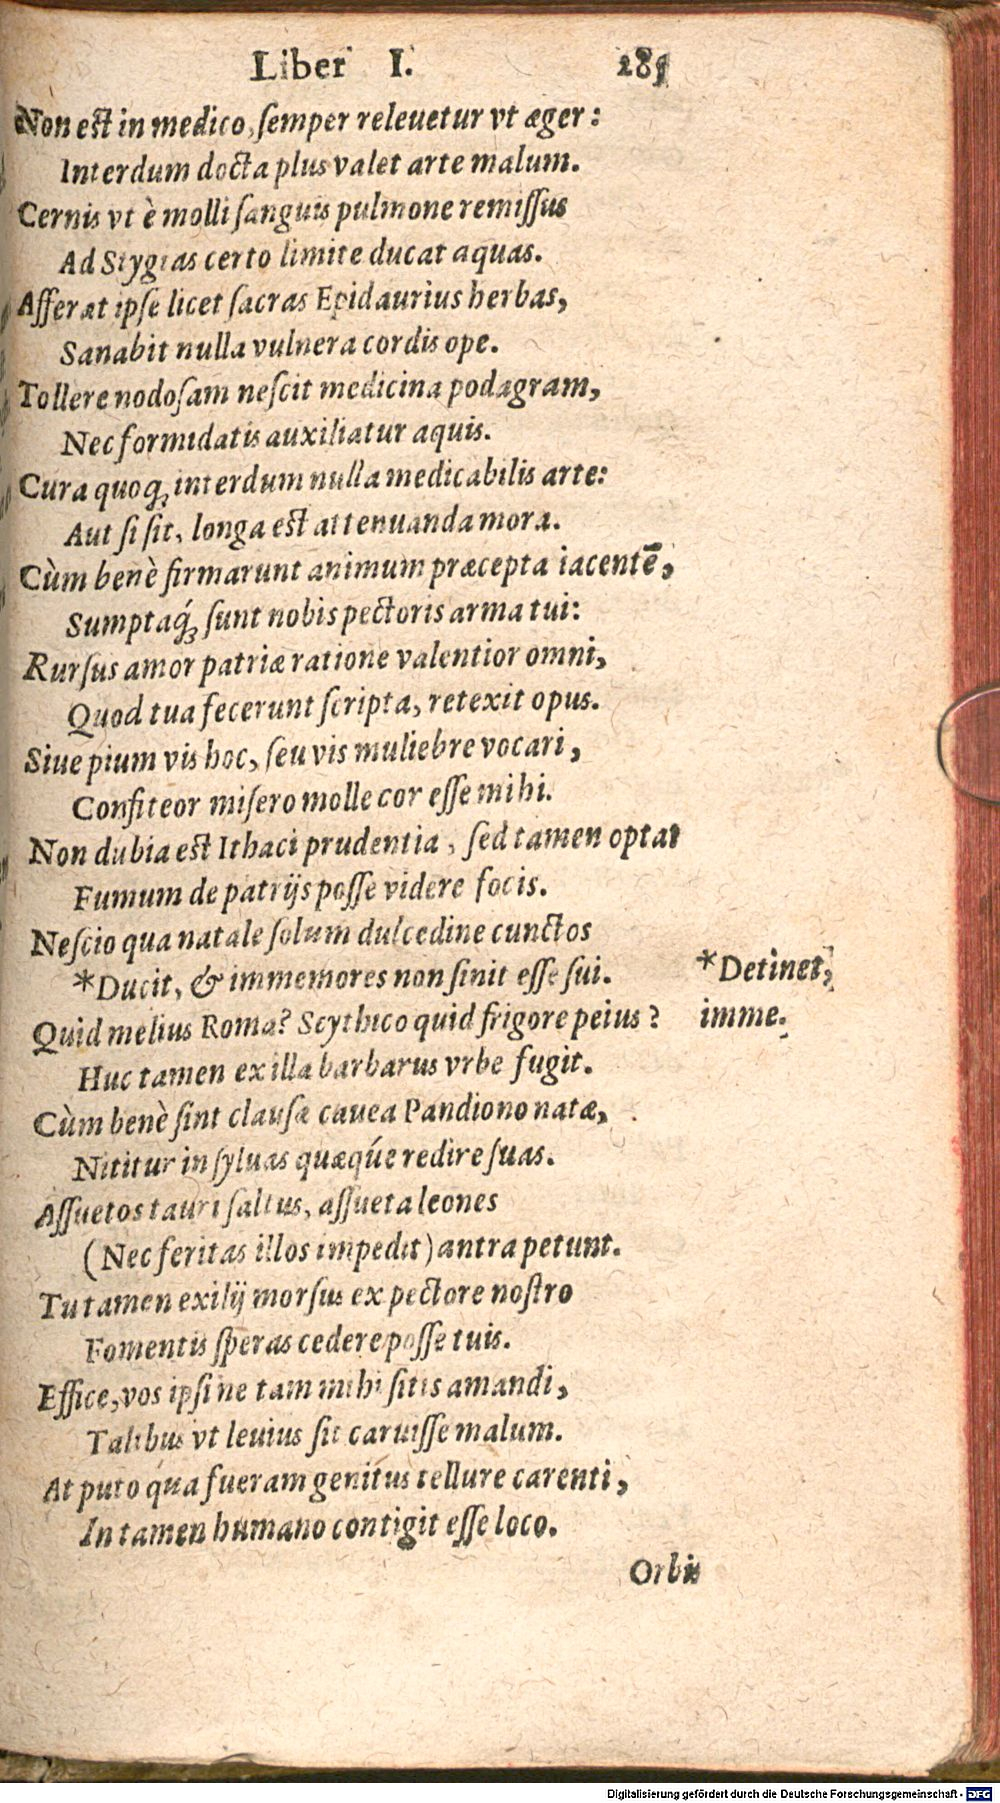 Liber I. 285
Non est in medico, ſemper releuetur vt æger:
Interdum docta plus valet arte malum.
Cernis vt è molli ſanguis pulmone remiſſus
Ad Stygias certo limite ducat aquas.
Afferat ipſe licet ſacras Epidaurius herbas,
Sanabit nulla vulnera cordis ope.
Tollere nodoſam neſcit medicina podagram,
Nec formidatis auxiliatur aquis.
Cura quoq; interdum nulla medicabilis arte:
Aut ſi ſit, longa est attenuanda mora.
Cùm benè firmarunt animum præcepta iacentē,
Sumptaq́; ſunt nobis pectoris arma tui:
Rurſus amor patriæ ratione valentior omni,
Quod tua fecerunt ſcripta, retexit opus.
Siue pium vis hoc, ſeu vis muliebre vocari,
Confiteor miſero molle cor eſſe mihi.
Non dubia est Ithaci prudentia, ſed tamen optat
Fumum de patrijs poſſe videre focis.
Neſcio qua natale ſolum dulcedine cunctos
*Ducit, & immemores non ſinit eſſe ſui.
*Detinet,
imme.
Quid melius Roma? Scythico quid frigore peius?
Huc tamen ex illa barbarus vrbe fugit.
Cùm benè ſint clauſæ cauea Pandiono natæ,
Nititur in ſyluas quæq́ue redire ſuas.
Aſſuetos tauri ſaltus, aſſueta leones
(Nec feritas illos impedit) antra petunt.
Tu tamen exilij morſus ex pectore noſtro
Fomentis ſperas cedere poſſe tuis.
Effice, vos ipſi ne tam mihi ſitis amandi,
Talibus vt leuius ſit caruiſſe malum.
At puto qua fueram genitus tellure carenti,
In tamen humano contigit eſſe loco.
Orbis
Digitalisierung gefördert durch die Deutsche Forschungsgemeinschaft - DFG